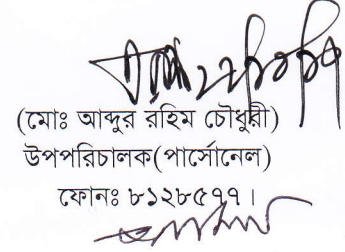 (মোঃ আব্দুর রহিম চৌধুরী)
উপপরিচালক(পার্সোনেল)
ফোনঃ ৮১২৮৫৭৭।